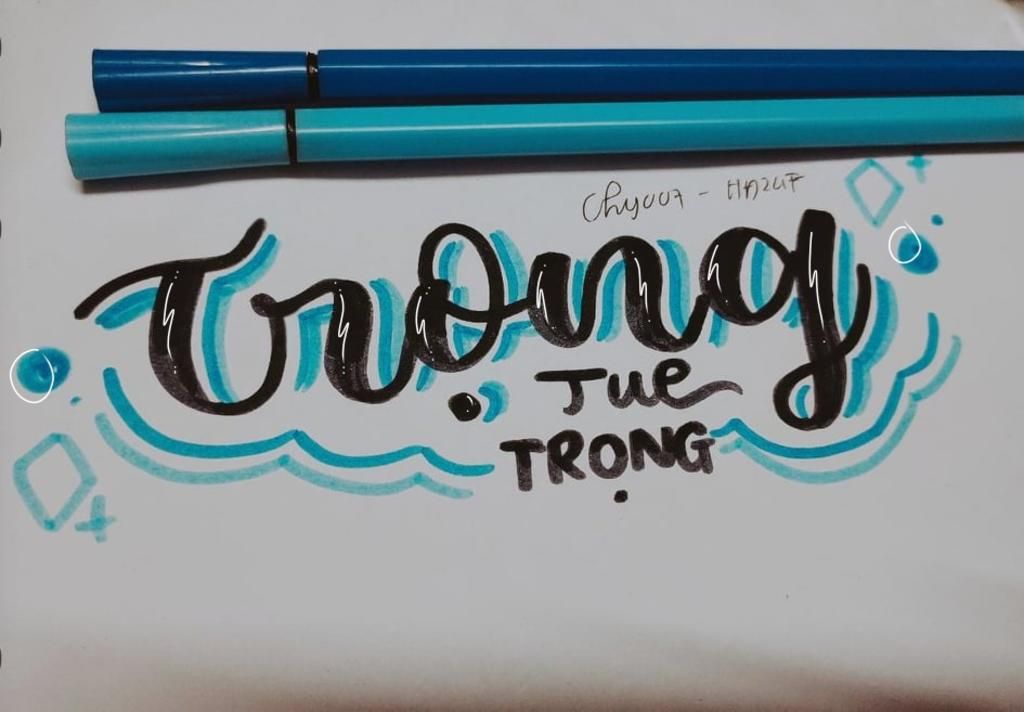 Chy007 - HA2UF
Trọng
Tue
TRỌNG